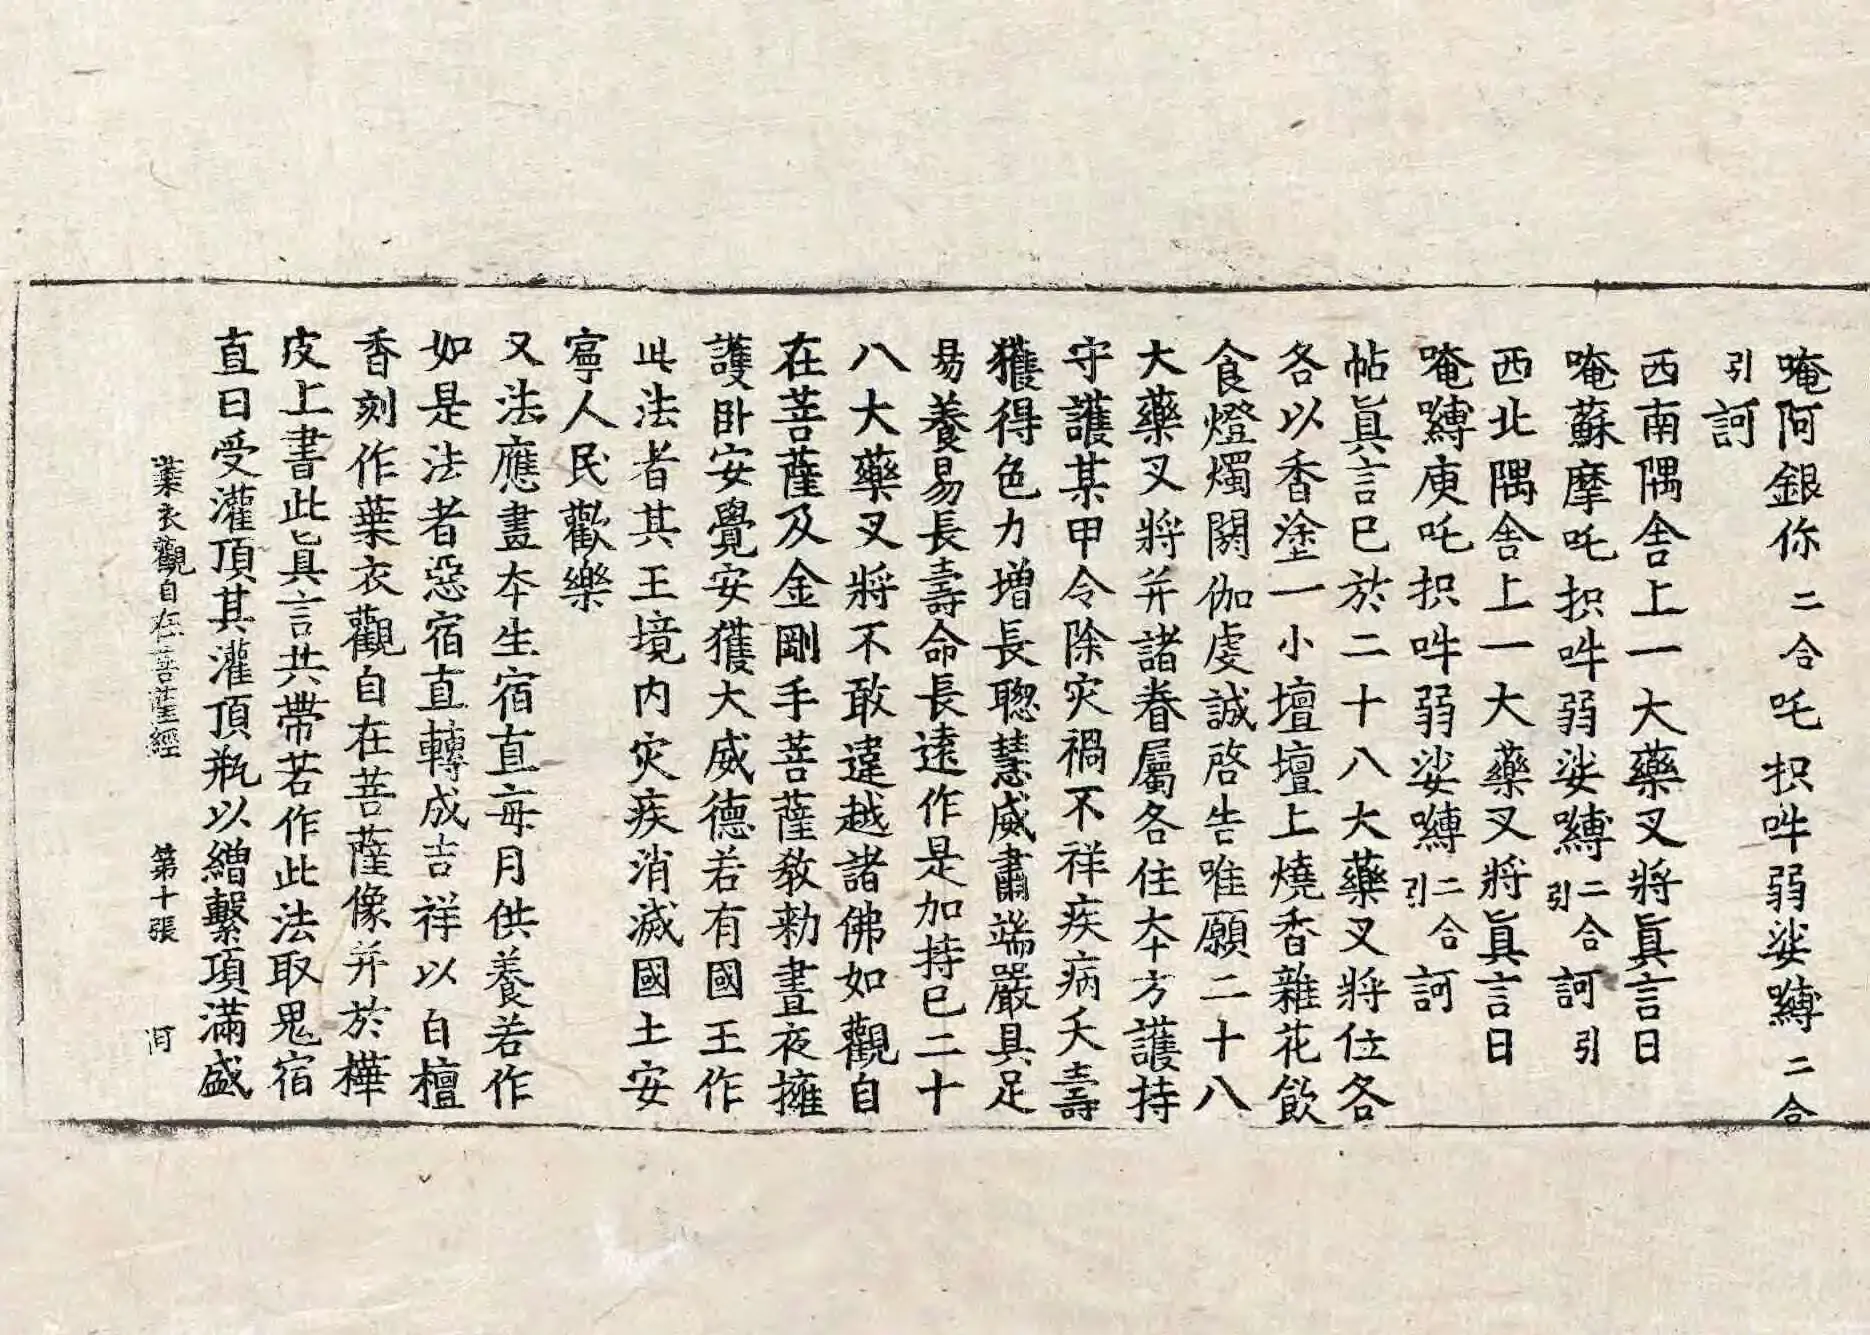 唵阿銀你二合吒枳吽弱娑嚩二合
引訶
西南隅舍上一大藥叉將眞言曰
唵蘇摩吒枳吽弱娑嚩二合引訶引
西北隅舍上一大藥叉將眞言曰
唵嚩庾吒枳吽弱娑嚩二合引訶
帖眞言已於二十八大藥叉將位各
各以香塗一小壇壇上燒香雜花飲
食燈燭閼伽虔誠啓告唯願二十八
大藥叉將并諸眷屬各住本方護持
守護某甲令除灾禍不祥疾病夭壽
獲得色力增長聰慧威肅端嚴具足
易養易長壽命長遠作是加持已二十
八大藥叉將不敢違越諸佛如觀自
在菩薩及金剛手菩薩教勅晝夜擁
護卧安覺安獲大威德若有國王作
此法者其王境内灾疾消滅國土安
寧人民歡樂
又法應畫本生宿直每月供養若作
如是法者惡宿直轉成吉祥以白檀
香刻作葉衣觀自在菩薩像并於樺
皮上書此眞言共帶若作此法取鬼宿
直日受灌頂其灌頂瓶以繒繫項滿盛
葉衣觀自在菩薩經 第十張